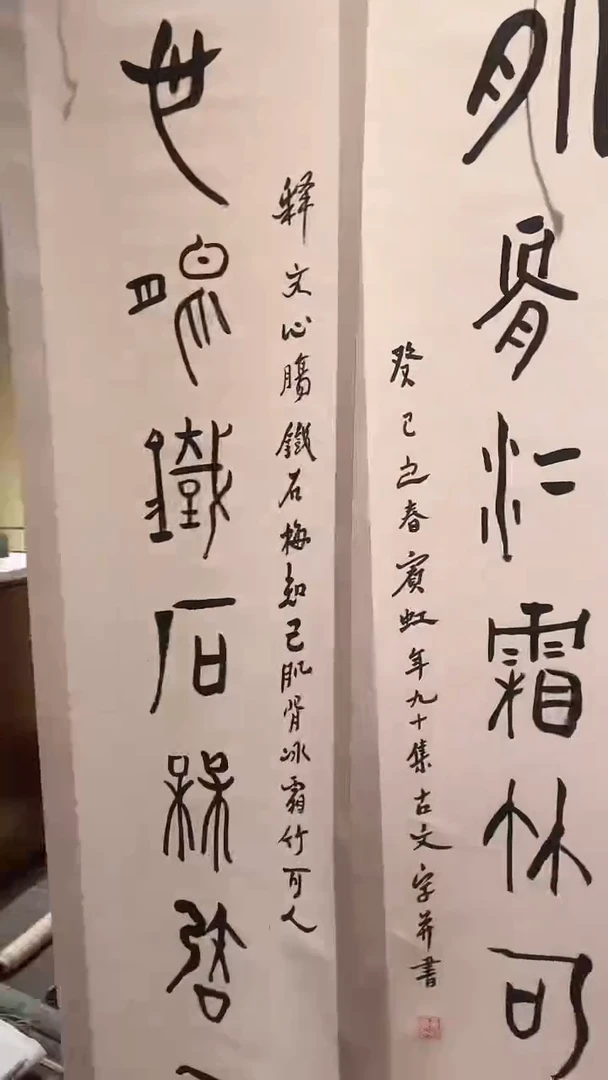 肌骨冰霜竹可
癸巳立春賓虹年九十集古文字并書
释文心腸鐵石梅知己肌骨冰霜竹可人
心腸鐵石梅知